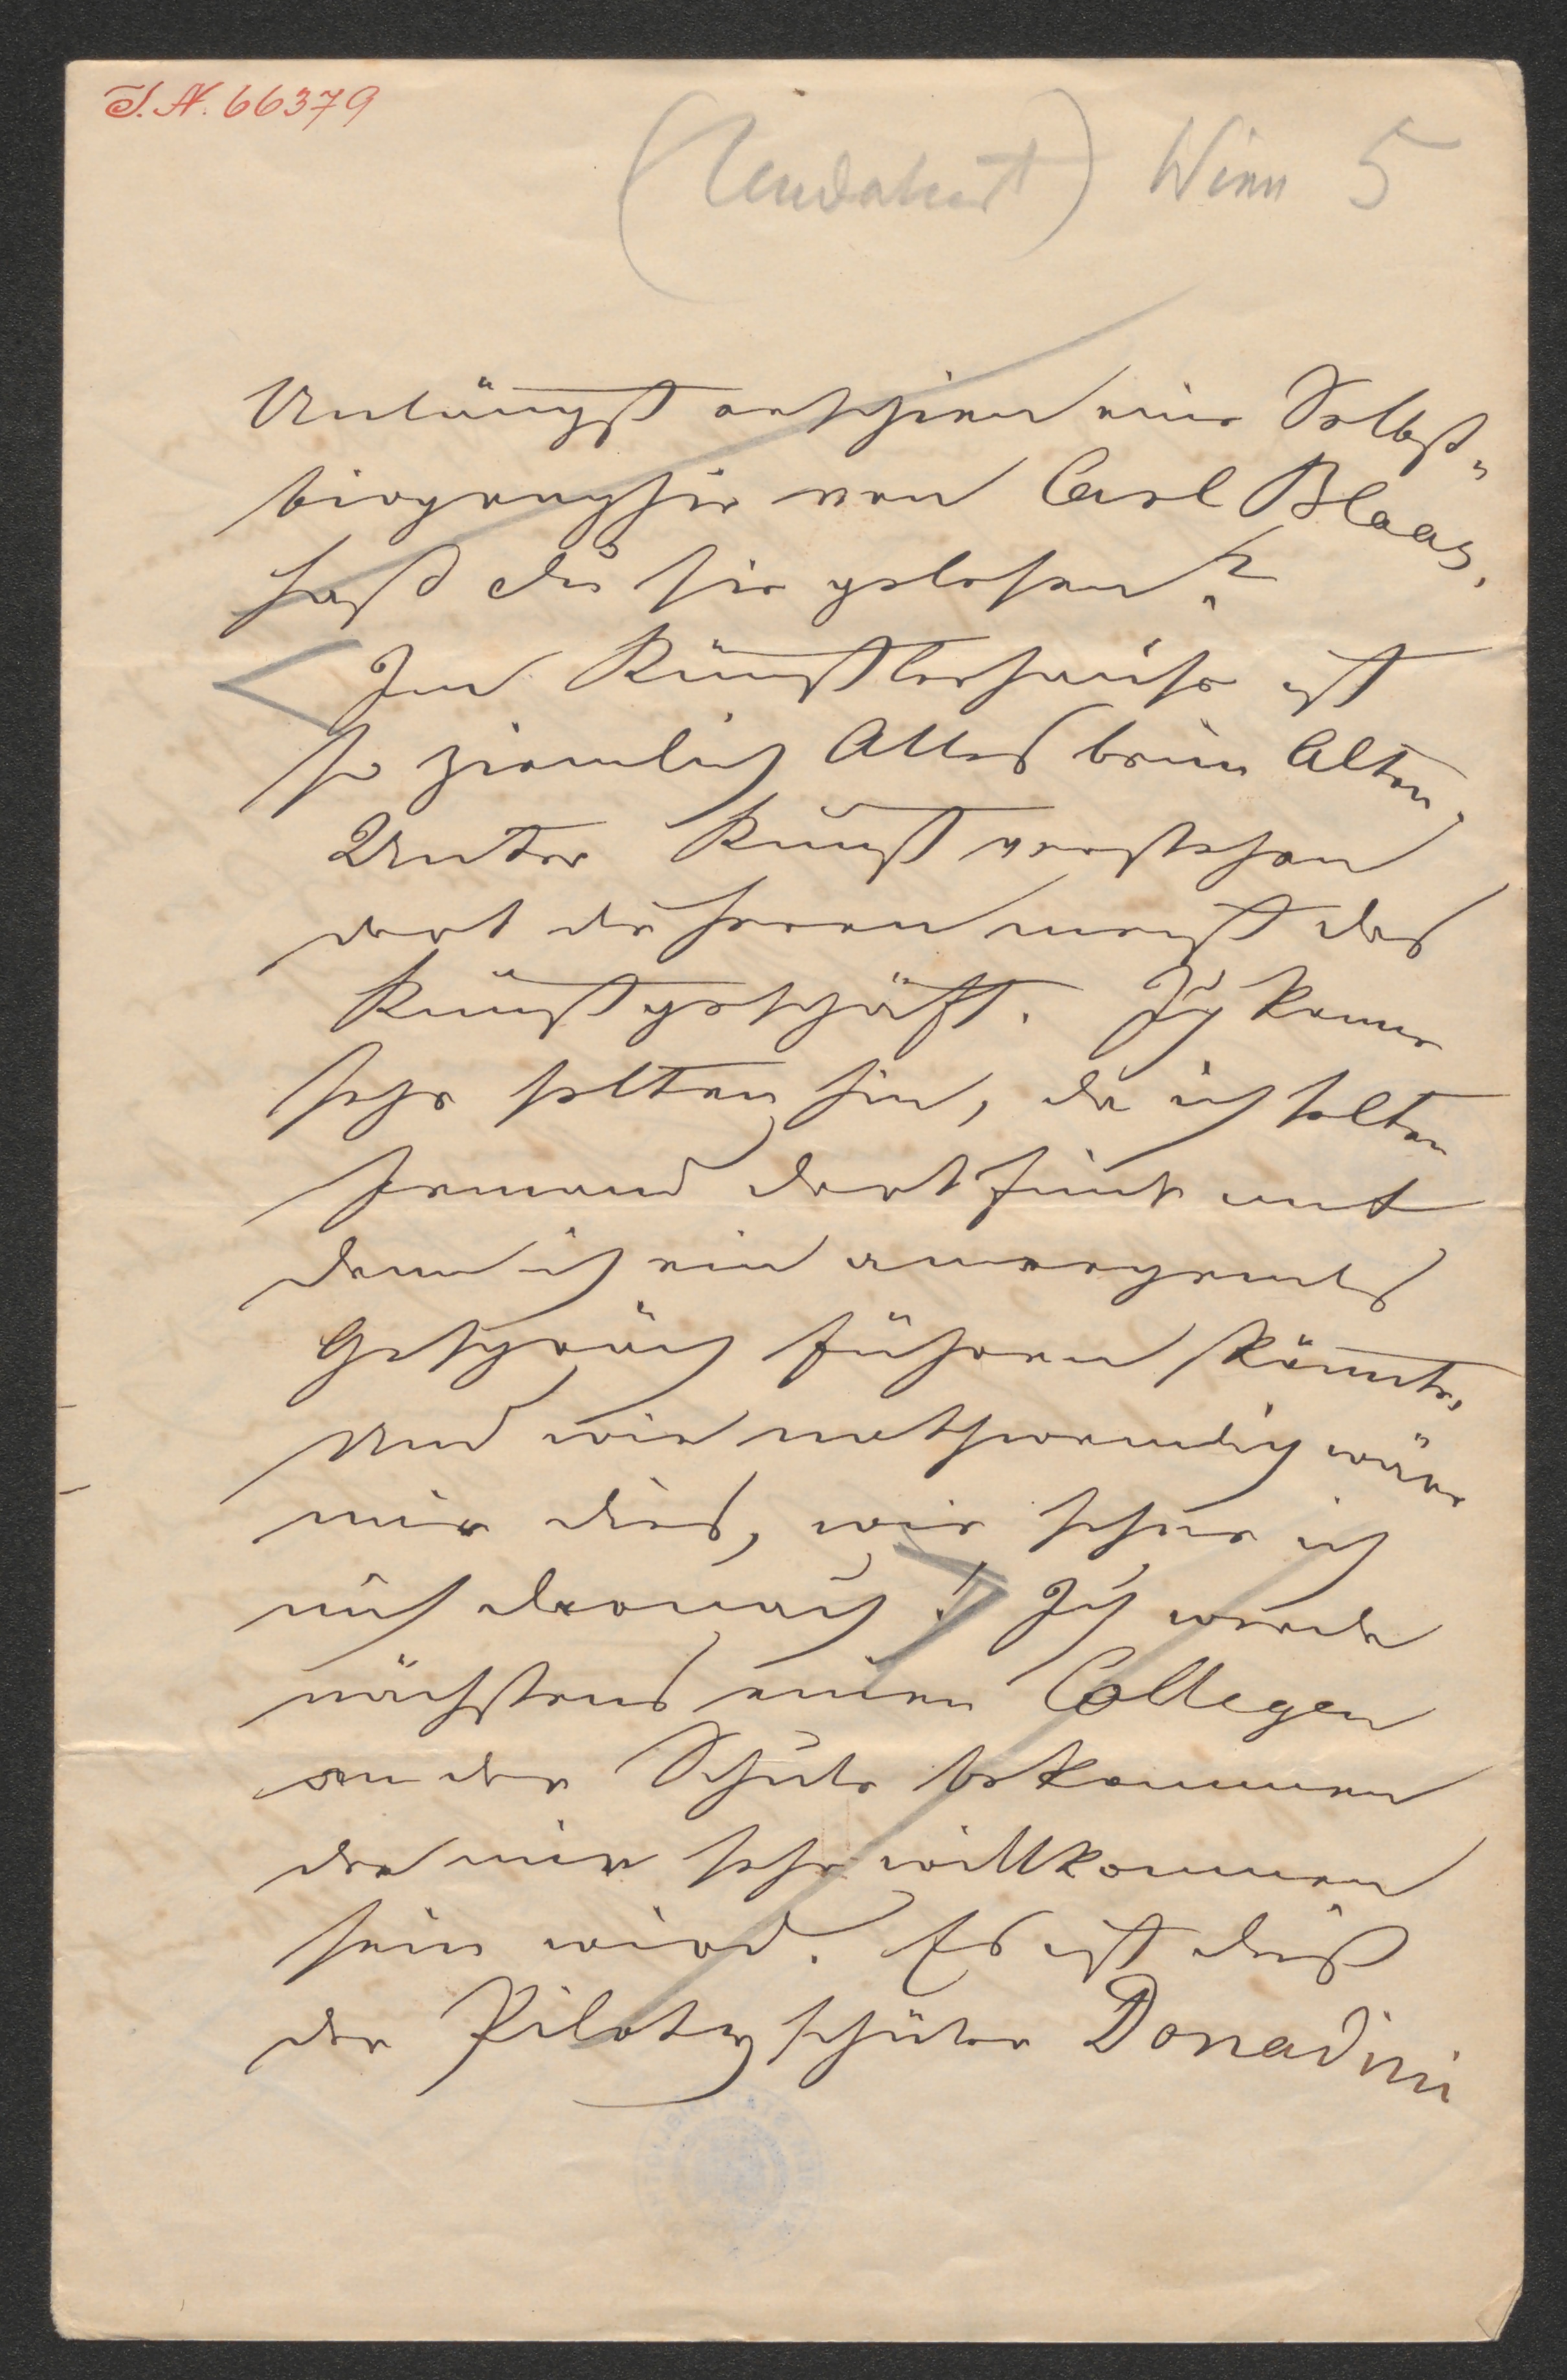 I. N. 66379
(Undatiert) Wien 5
Unlängst erschien eine Selbst-
biographie von Carl Blaas,
hast du sie gelesen?
Im Künstlerhause ist
so ziemlich Alles beim Alten.
Unter Kunst verstehen
dort die Herren meist das
Kunstgeschäft. Ich komme
sehr selten hin, da ich selten
Jemand dort finde mit
dem ich ein anregendes
Gespräch führen könnte,
und wie nothwendig wäre
mir dies, wie sehne ich
mich darnach! Ich werde
nächstens einen Collegen
an der Schule bekommen
der mir sehr willkommen
sein wird. Es ist dieß
der Pilotyschüler Donadini